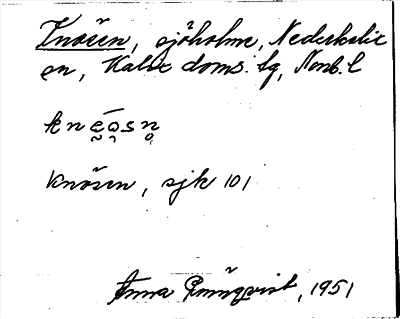 Knösen, sjöholme, Nederkalix
sn, Kalix doms. lg, Nonb. l
knēo̯sn̥
Knösen, sjk 101
Anna Rönnqvist, 1951